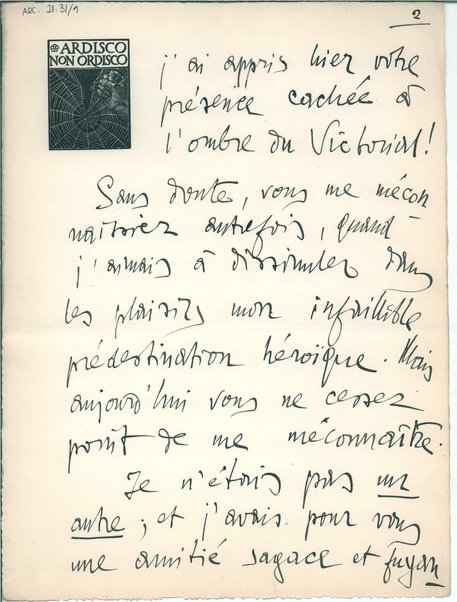 ARC. 21.31/1
2
ARDISCO
NON ORDISCO
j'ai appris hier votre
présence cachée à
l'ombre du Victorial!
Sans doute, vous me mécon
naissiez autrefois, quand
j'aimais à dissimuler dans
les plaisirs mon infaillible
prédestination héroïque. Mais
aujourd'hui vous ne cessez
point de me méconnaître.
Je n'étais pas un
autre; et j'avais pour vous
une amitié sagace et fuyan